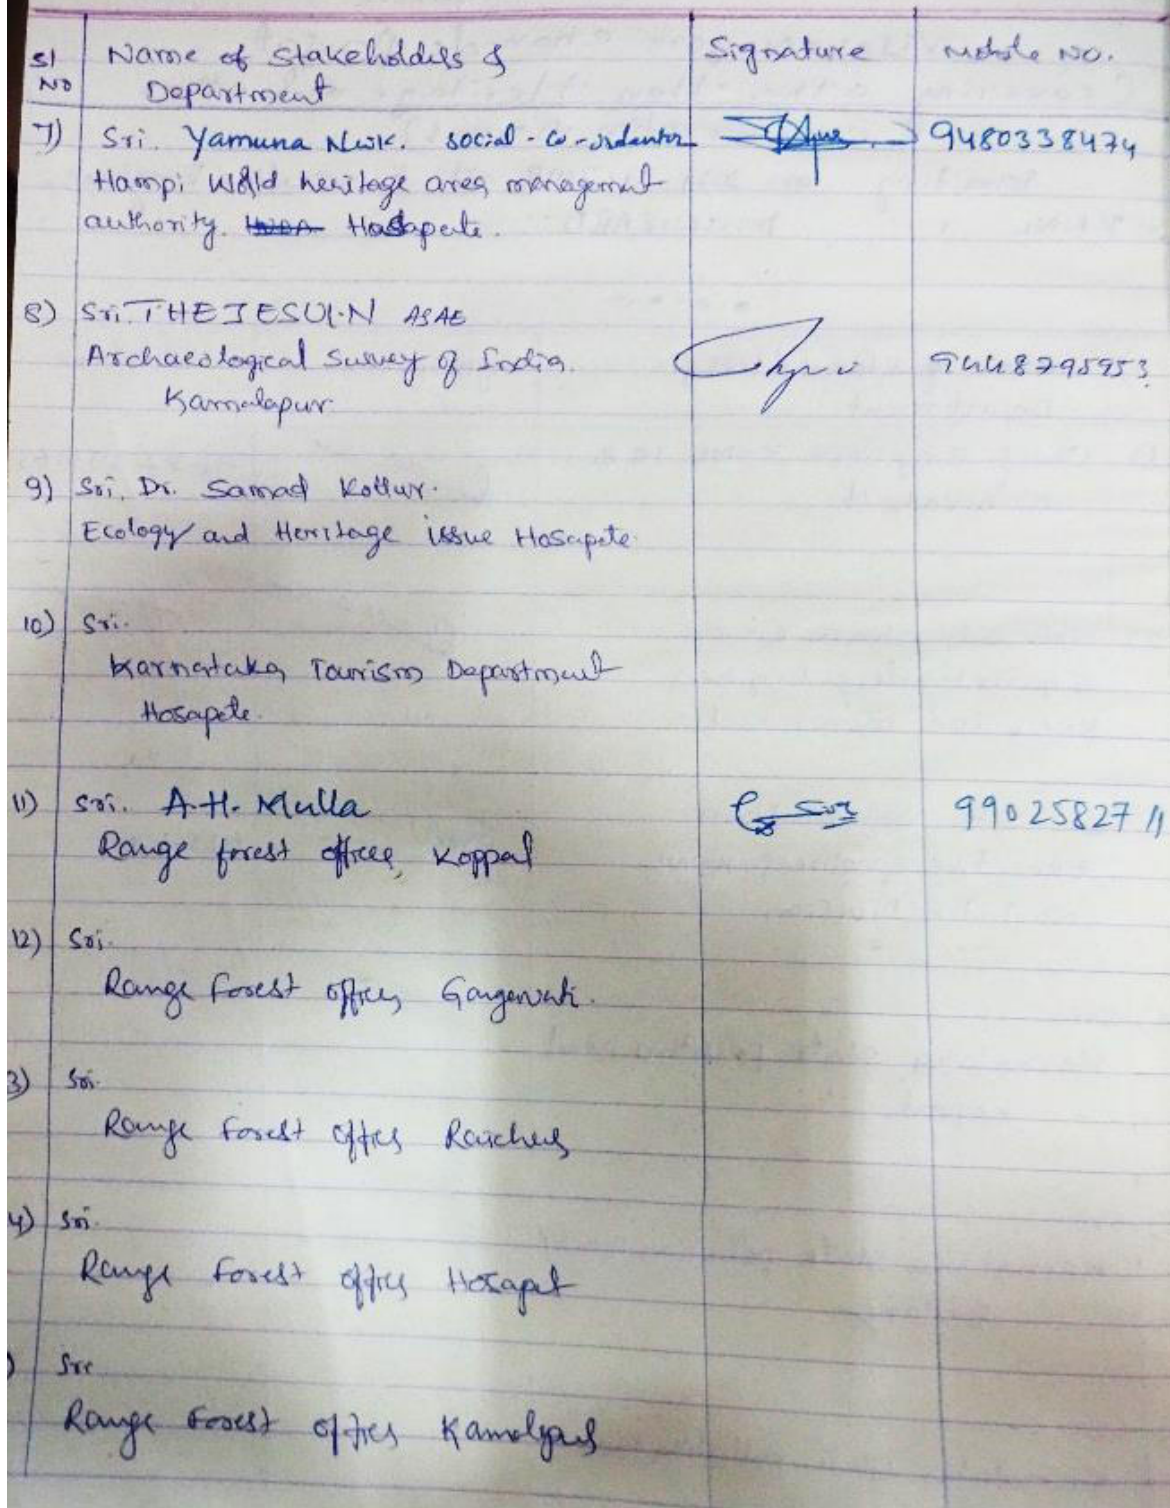 Sl No Name of Stakeholders & Department Signature Mobile No.
7) Sri. Yamuna Naik. social-co-ordantor 9480338474
Hampi World heritage area management
authority. Hosapete.
8) Sri. THEJESWI.N ASAE
Archaeological Survey of India. 9448795953
Kamalapur
9) Sri. Dr. Samad Kottur.
Ecology and Heritage issue Hosapete
10) Sri.
Karnataka Tourism Department
Hosapete.
11) Sri. A.H. Mulla 9902582711
Range forest officer, Koppal
12) Sri.
Range Forest officer, Gangavati.
3) Sri.
Range Forest officer Raichur
4) Sri.
Range Forest officer Hosapet
) Sri
Range Forest officer Kamalapur